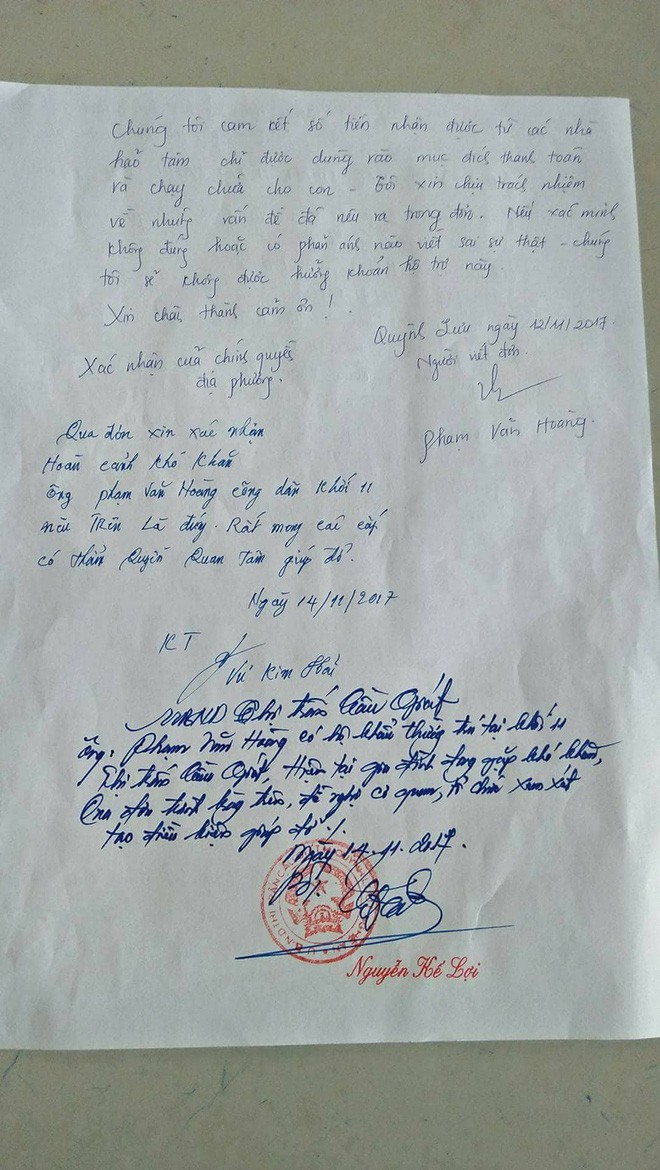 Chúng tôi cam kết số tiền nhận được từ các nhà
hảo tâm chỉ được dùng vào mục đích thanh toán
và chạy chữa cho con - Tôi xin chịu trách nhiệm
về những vấn đề đã nêu ra trong đơn. Nếu xác minh
không đúng hoặc có phản ánh nào viết sai sự thật - chúng
tôi sẽ không được hưởng khoản hỗ trợ này.
Xin chân thành cảm ơn!
Quỳnh Lưu ngày 12/11/2017.
Người viết đơn.
Phạm Văn Hoàng.
Xác nhận của chính quyền
địa phương.
Qua đơn xin xác nhận
Hoàn cảnh khó khăn
Ông Phạm Văn Hoàng công dân khối 11
nêu Trên Là đúng. Rất mong các cấp
có thẩm quyền Quan Tâm giúp đỡ.
Ngày 14/11/2017
KT
Vũ Kim Hải
UBND Thị trấn Cầu Giát
Ông: Phạm Văn Hoàng có hộ khẩu thường trú tại khối 11
Thị trấn Cầu Giát, Hiện tại gia đình đang gặp khó khăn,
đề nghị cơ quan, tổ chức xem xét
tạo điều kiện giúp đỡ ./.
Ngày 14.11.2017.
Nguyễn Kế Lợi